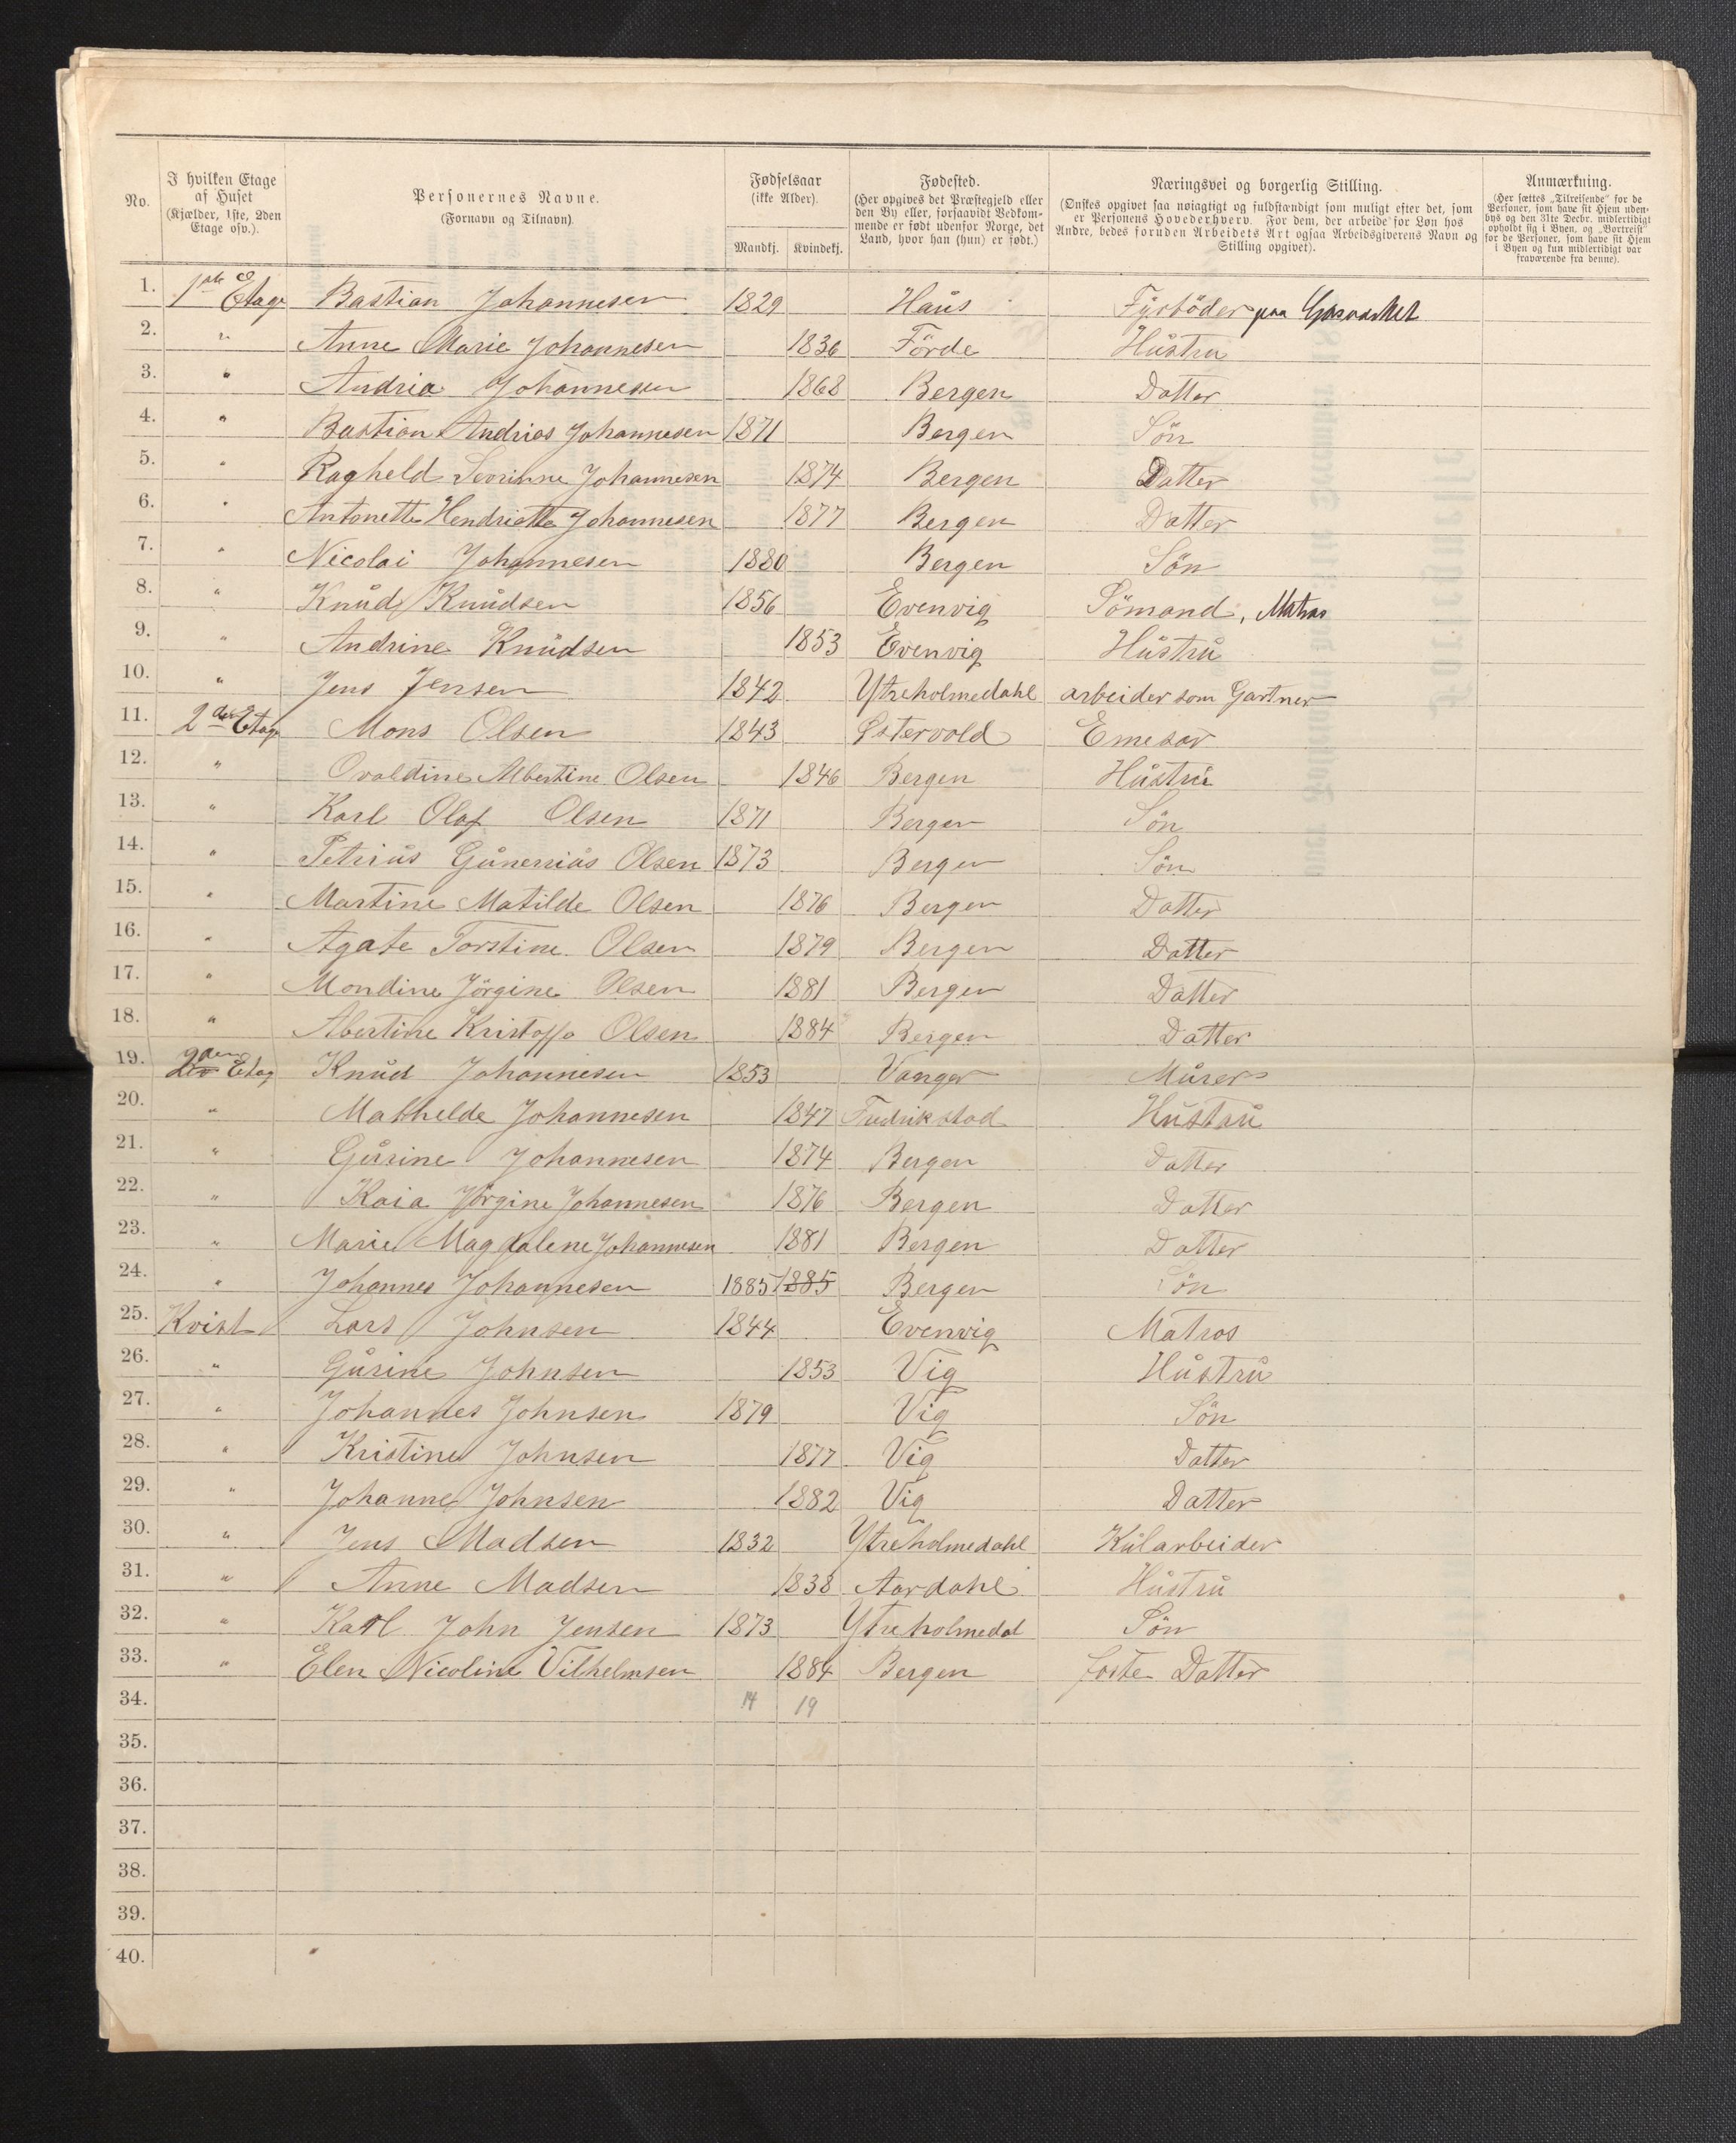 No. | I hvilken Etage af Huset (Kjælder, 1ste, 2den Etage osv.). | Personernes Navne. (Fornavn og Tilnavn). | Fødselsaar (ikke Alder). Mandkj. | Kvindekj. | Fødested. (Her opgives det Præstegjeld eller den By eller, forsaavidt Vedkommende er født udenfor Norge, det Land, hvor han (hun) er født.) | Næringsvei og borgerlig Stilling. (Ønskes opgivet saa nøiagtigt og fuldstændigt som muligt efter det, som er Personens Hovederhverv. For dem, der arbeide for Løn hos Andre, bedes foruden Arbeidets Art ogsaa Arbeidsgiverens Navn og Stilling opgivet). | Anmærkning. (Her sættes „Tilreisende“ for de Personer, som have sit Hjem udenbys og den 31te Decbr. midlertidigt opholdt sig i Byen, og „Bortreist“ for de Personer, som have sit Hjem i Byen og kun midlertidigt var fraværende fra denne).
1. 1ste Etage Bastian Johannesen 1829 Haus Fyrböder paa Gasværket
2. " Anne Marie Johannesen 1836 Förde Hustru
3. " Andria Johannesen 1868 Bergen Datter
4. " Bastian Andrias Johannesen 1871 Bergen Sön
5. " Ragheld Sevrinne Johannesen 1874 Bergen Datter
6. " Antonette Hendriette Johannesen 1877 Bergen Datter
7. " Nicolai Johannesen 1880 Bergen Sön
8. " Knud Knudsen 1856 Evenvig Sömand, Matros
9. " Andrine Knudsen 1853 Evenvig Hustru
10. " Jens Jensen 1842 Ytreholmedahl arbeider som Gartner
11. 2den Etag Mons Olsen 1843 Østervold
12. " Ovaldine Albertine Olsen 1846 Bergen Hustru
13. " Karl Olaf Olsen 1871 Bergen Sön
14. " Petrius Gunerius Olsen 1873 Bergen Sön
15. " Martine Matilde Olsen 1876 Bergen Datter
16. " Agate Torstine Olsen 1879 Bergen Datter
17. " Mondine Jörgine Olsen 1881 Bergen Datter
18. " Abertine Kristoffa Olsen 1884 Bergen Datter
19. 2den Etag Knud Johannesen 1853 Vanger Murer
20. " Mathelde Johannesen 1847 Fredrikstad Hustru
21. " Gurine Johannesen 1874 Bergen Datter
22. " Kaia Jörgine Johannesen 1876 Bergen Datter
23. " Marie Magdalene Johannesen 1881 Bergen Datter
24. " Johannes Johannesen 1885 1885 Bergen Sön
25. Kvist Lars Johnsen 1844 Evenvig Matros
26. " Gurine Johnsen 1853 Vig Hustru
27. " Johannes Johnsen 1879 Vig Sön
28. " Kristine Johnsen 1877 Vig Datter
29. " Johanne Johnsen 1882 Vig Datter
30. " Jens Madsen 1832 Ytreholmedahl Kularbeider
31. " Anne Madsen 1838 Aardahl Hustru
32. " Karl John Jensen 1873 Ytreholmedal Sön
33. " Elen Nicoline Vilhelmsen 1884 Bergen foste Datter
34. 14 19
35.
36.
37.
38.
39.
40.